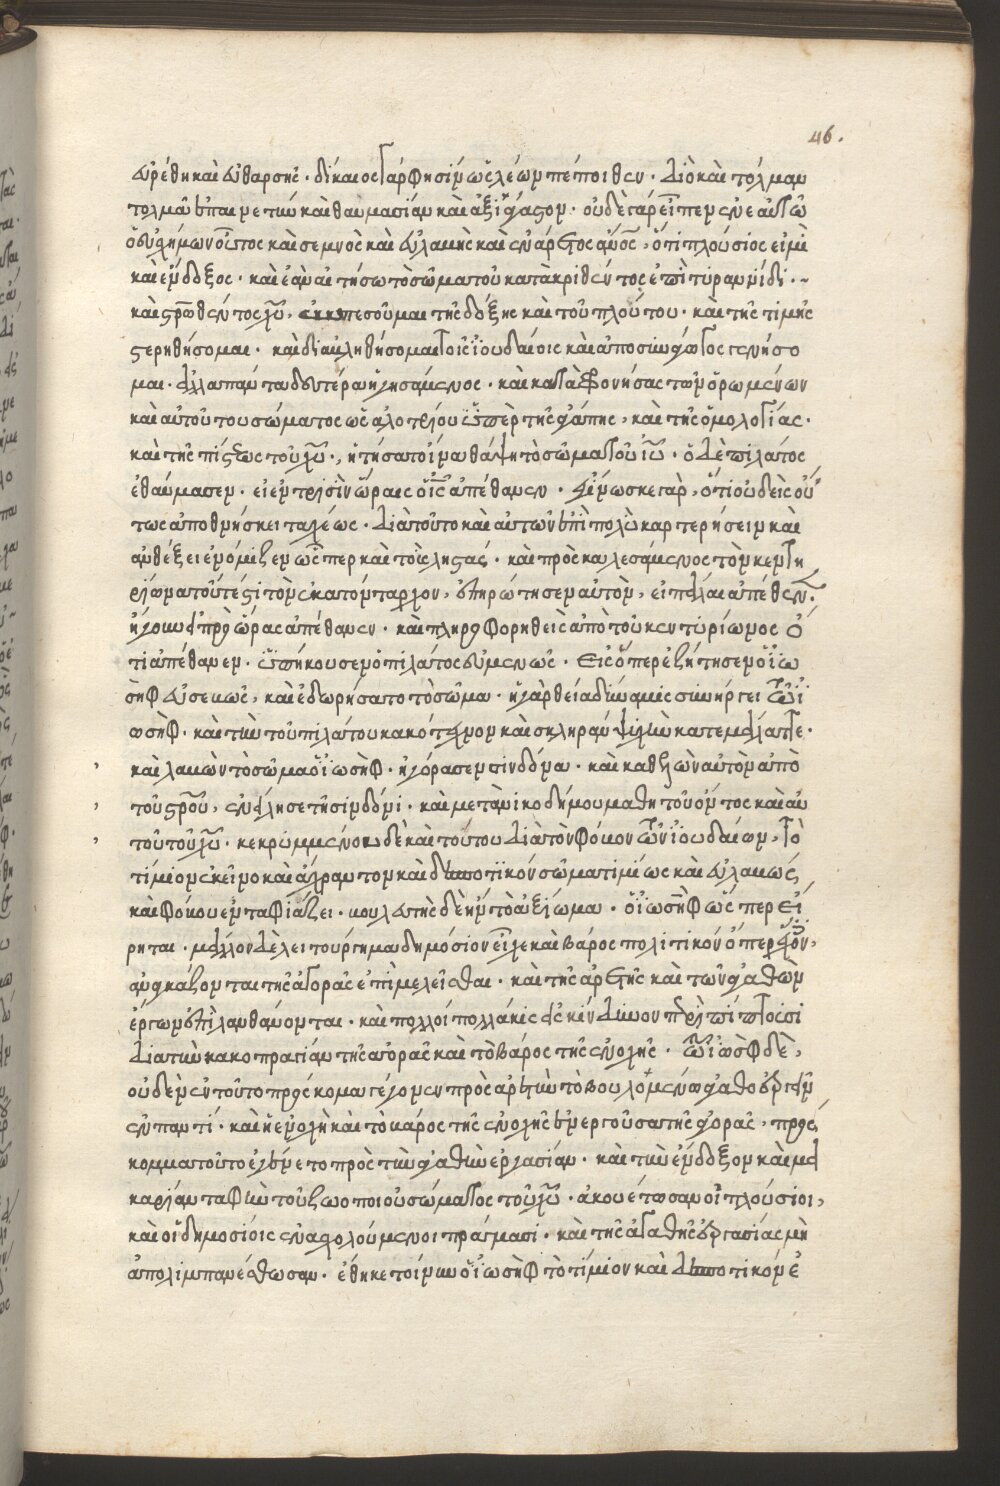 46.
εὑρέθη καὶ εὐθαρσὴς · δίκαιος γάρ φησιν ὡς λέων πέποιθεν · διὸ καὶ τόλμαν
τολμᾶ ἐπαινετὴν καὶ θαυμασίαν καὶ ἀξιάγαστον · οὐδὲ γὰρ εἶπεν ἐν ἑαυτῶ
ὁ εὐσχήμων οὗτος καὶ σεμνὸς καὶ εὐλαβὴς καὶ ἐνάρετος · ὅτι πλούσιος εἰμὶ
καὶ ἔνδοξος · καὶ ἐὰν αἰτήσω τὸ σῶμα τοῦ κατακριθέντος ἐπὶ τυραννίδι ·
καὶ στρωθέντος χυ, ἐκπεσοῦμαι τῆς δόξης καὶ τοῦ πλούτου · καὶ τῆς τιμῆς
στερηθήσομαι · καὶ διαβληθήσομαι τοῖς ἰουδαίοις καὶ ἀποσυνάγωγος γενήσο
μαι · ἀλλὰ πάντα δεύτερα ἡγησάμενος · καὶ καταφρονήσας τῶν ὁρωμένων
καὶ αὐτοῦ του σώματος ὡς ἀλοτρίου ὑπὲρ τῆς ἀγάπης, καὶ τῆς ὁμολογίας ·
καὶ τῆς πίστεως τοῦ χυ ·, ἠτήσατο ἵνα θάψη τὸ σῶμα τοῦ ιυ · ὁ δὲ πιλάτος
ἐθαύμασεν · εἰ ἐν τρισὶν ὥραις ὁ ις ἀπέθανεν · γίνωσκε γὰρ, ὅτι οὐδεὶς οὕ
τως ἀποθνήσκει ταχέως · διὰ τοῦτο καὶ αὐτὸν ἐπὶ πολὺ καρτερήσειν καὶ
ἀνθέξειν ἐνόμιζεν ὥσπερ καὶ τοὺς ληστάς · καὶ προσκαλεσάμενος τὸν κεντη
ρίωνα τοῦτέστι τὸν ἑκατόνταρχον, ἐπηρώτησεν αὐτὸν, εἰ πάλαι ἀπέθανεν ·
ἤγουν πρὸ ὥρας ἀπέθανεν · καὶ πληροφορηθεὶς ἀπὸ τοῦ κεντυρίωνος ὅ
τι ἀπέθανεν · ὑπήκουσεν ὁ πιλάτος εὐμενῶς · εἰς ὅπερ ἐζήτησεν ὁ ἰω
σὴφ εὐσεβῶς, καὶ ἐδωρήσατο τὸ σῶμα · ἡ γὰρ θεία δύναμις συνήργει τῶ ἰ
ωσὴφ · καὶ τὴν τοῦ πιλάτου κακότεχνον καὶ σκληρὰν ψυχὴν κατεμάλαττε ·
καὶ λαβὼν τὸ σῶμα ὁ ἰωσὴφ · ἠγόρασεν σινδόνα · καὶ καθελὼν αὐτὸν ἀπὸ
τοῦ στρου, ἐνείλησε τῆ σινδόνι · καὶ μετὰ νικοδήμου μαθητοῦ ὄντος καὶ αυ
τοῦ τοῦ χυ · κεκρυμμένου δὲ καὶ τούτου διὰ τὸν φόβον τῶν ἰουδαίων, τὸ
τίμιον ἐκεῖνο καὶ ἄχραντον καὶ δεσποτϊκόν σῶμα τιμίως καὶ εὐλαβῶς
καὶ φόβου ἐνταφιάζει · βουλευτὴς δὲ ἦν τὸ ἀξίωμα · ὁ ἰωσὴφ ὥσπερ εἴ
ρηται · μᾶλλον δὲ λειτουργημα δημόσιον εἶχε καὶ βάρος πολιτικόν
ἀναγκάζονται τῆς ἀγορᾶς ἐπιμελεῖσθαι · καὶ τῆς ἀρετῆς καὶ τῶν ἀγαθῶν
ἔργων ἐπιλανθάνονται · καὶ πολλοί πολλάκις εἰς κίνδυνον περιπίπτουσι
διὰ τὴν κακοπραγίαν τῆς ἀγορᾶς καὶ τὸ βάρος τῆς ἐνοχῆς · τῶ ἰωσὴφ δὲ,
οὐδὲν ἐν τοῦτο πρόσκομμα γέγονεν πρὸς ἀρετὴν τὸ βουλόμενω ἀγαθοεργεῖν
ἐν παντί · καὶ ἡ ἐνοχὴ καὶ τὸ βάρος τῆς ἐνοχῆς ἐνεργοῦσα τῆς ἀγορᾶς, πρόσ
κομμα τοῦτο ἐγένετο πρὸς τὴν ἀγαθὴν ἐργασίαν · καὶ τὴν ἔνδοξον καὶ μα
καρίαν ταφὴν τοῦ ζωοποιοῦ σώματος τοῦ χυ · ἀκουέτωσαν οἱ πλούσιοι,
καὶ οἱ δημοσίοις ἐνασχολούμενοι πράγμασι · καὶ τῆς ἀγαθῆς ἐργασίας μὴ
ἀπολιμπανέσθωσαν · ἔθηκε τοίνυν ὁ ἰωσὴφ τὸ τίμιον καὶ δεσποτικόν ἐ